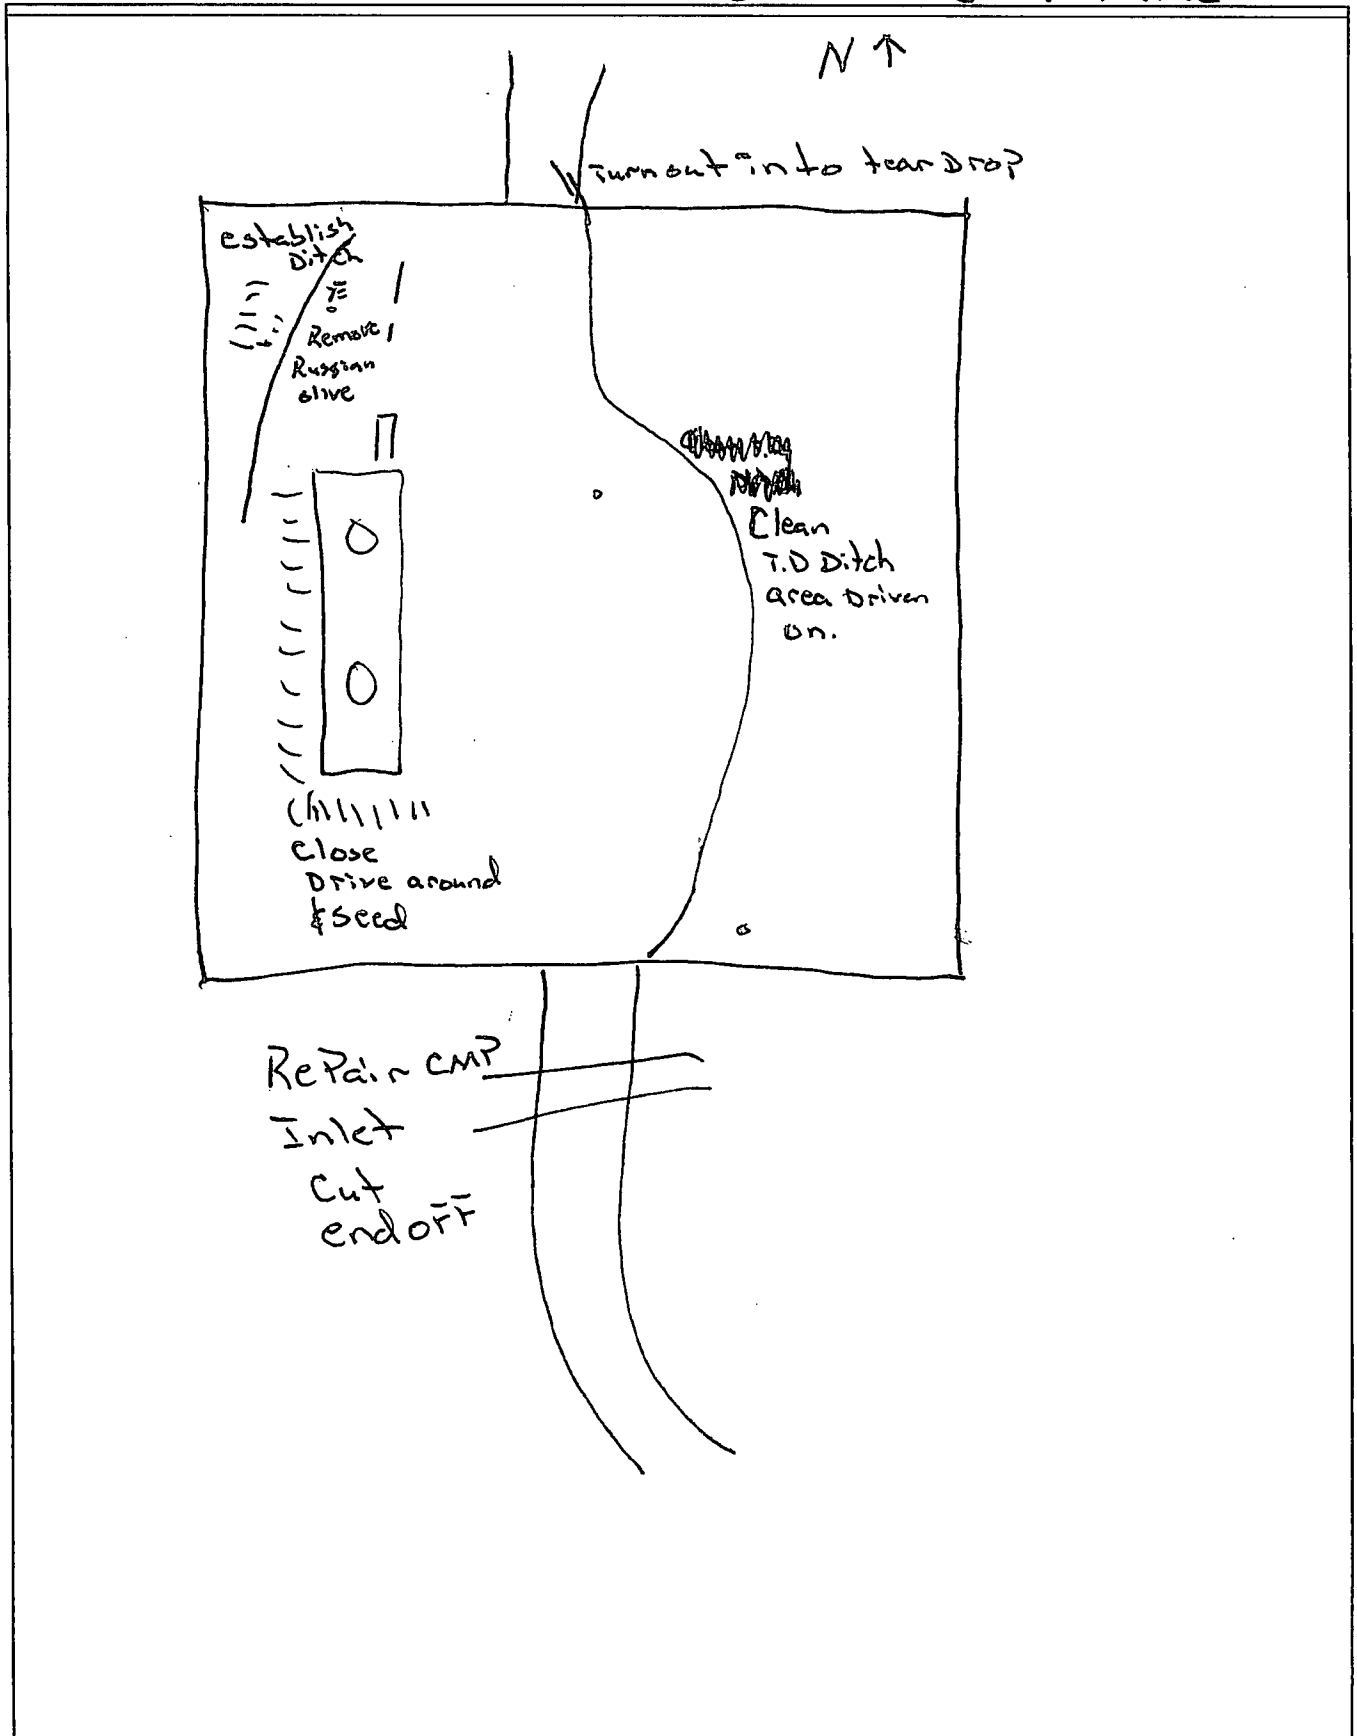 N ↑
Turnout into tear Drop
establish
Ditch
Remove
Russian
olive
Clean
T.D Ditch
area Driven
on.
Close
Drive around
& seed
RePair CMP
Inlet
Cut
end off